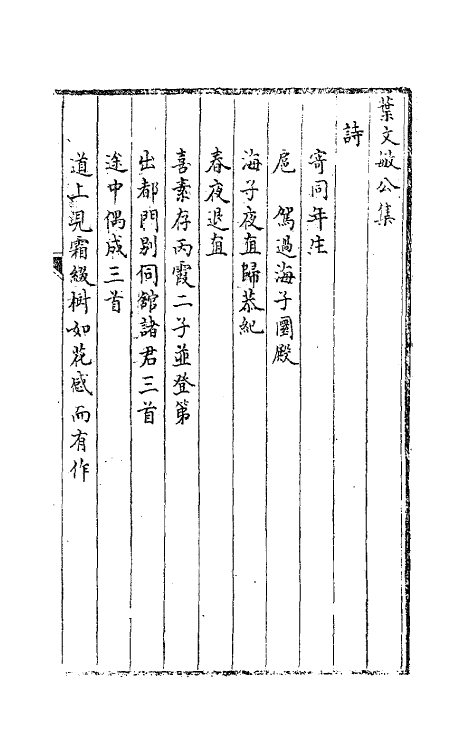 葉文敏公集
詩
寄同年生
扈 駕過海子團殿
海子夜直歸恭紀
春夜退直
喜素存丙霞二子並登第
出都門別同館諸君三首
途中偶成三首
道上見霜綴樹如花感而有作